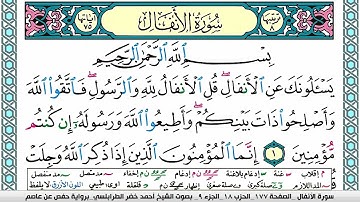 ترتيبها ٨ سُورَةُ الأَنفَالِ آياتها ٧٥
بِسْمِ ٱللَّهِ ٱلرَّحْمَٰنِ ٱلرَّحِيمِ
يَسْـَٔلُونَكَ عَنِ ٱلْأَنفَالِ ۖ قُلِ ٱلْأَنفَالُ لِلَّهِ وَٱلرَّسُولِ ۖ فَٱتَّقُوا۟ ٱللَّهَ
وَأَصْلِحُوا۟ ذَاتَ بَيْنِكُمْ ۖ وَأَطِيعُوا۟ ٱللَّهَ وَرَسُولَهُۥٓ إِن كُنتُم
مُّؤْمِنِينَ ١ إِنَّمَا ٱلْمُؤْمِنُونَ ٱلَّذِينَ إِذَا ذُكِرَ ٱللَّهُ وَجِلَتْ
سورة الأنفال_ الصفحة ١٧٧_ الحزب ١٨_ الجزء ٩_ بصوت الشيخ أحمد خضر الطرابلسي_ برواية حفص عن عاصم